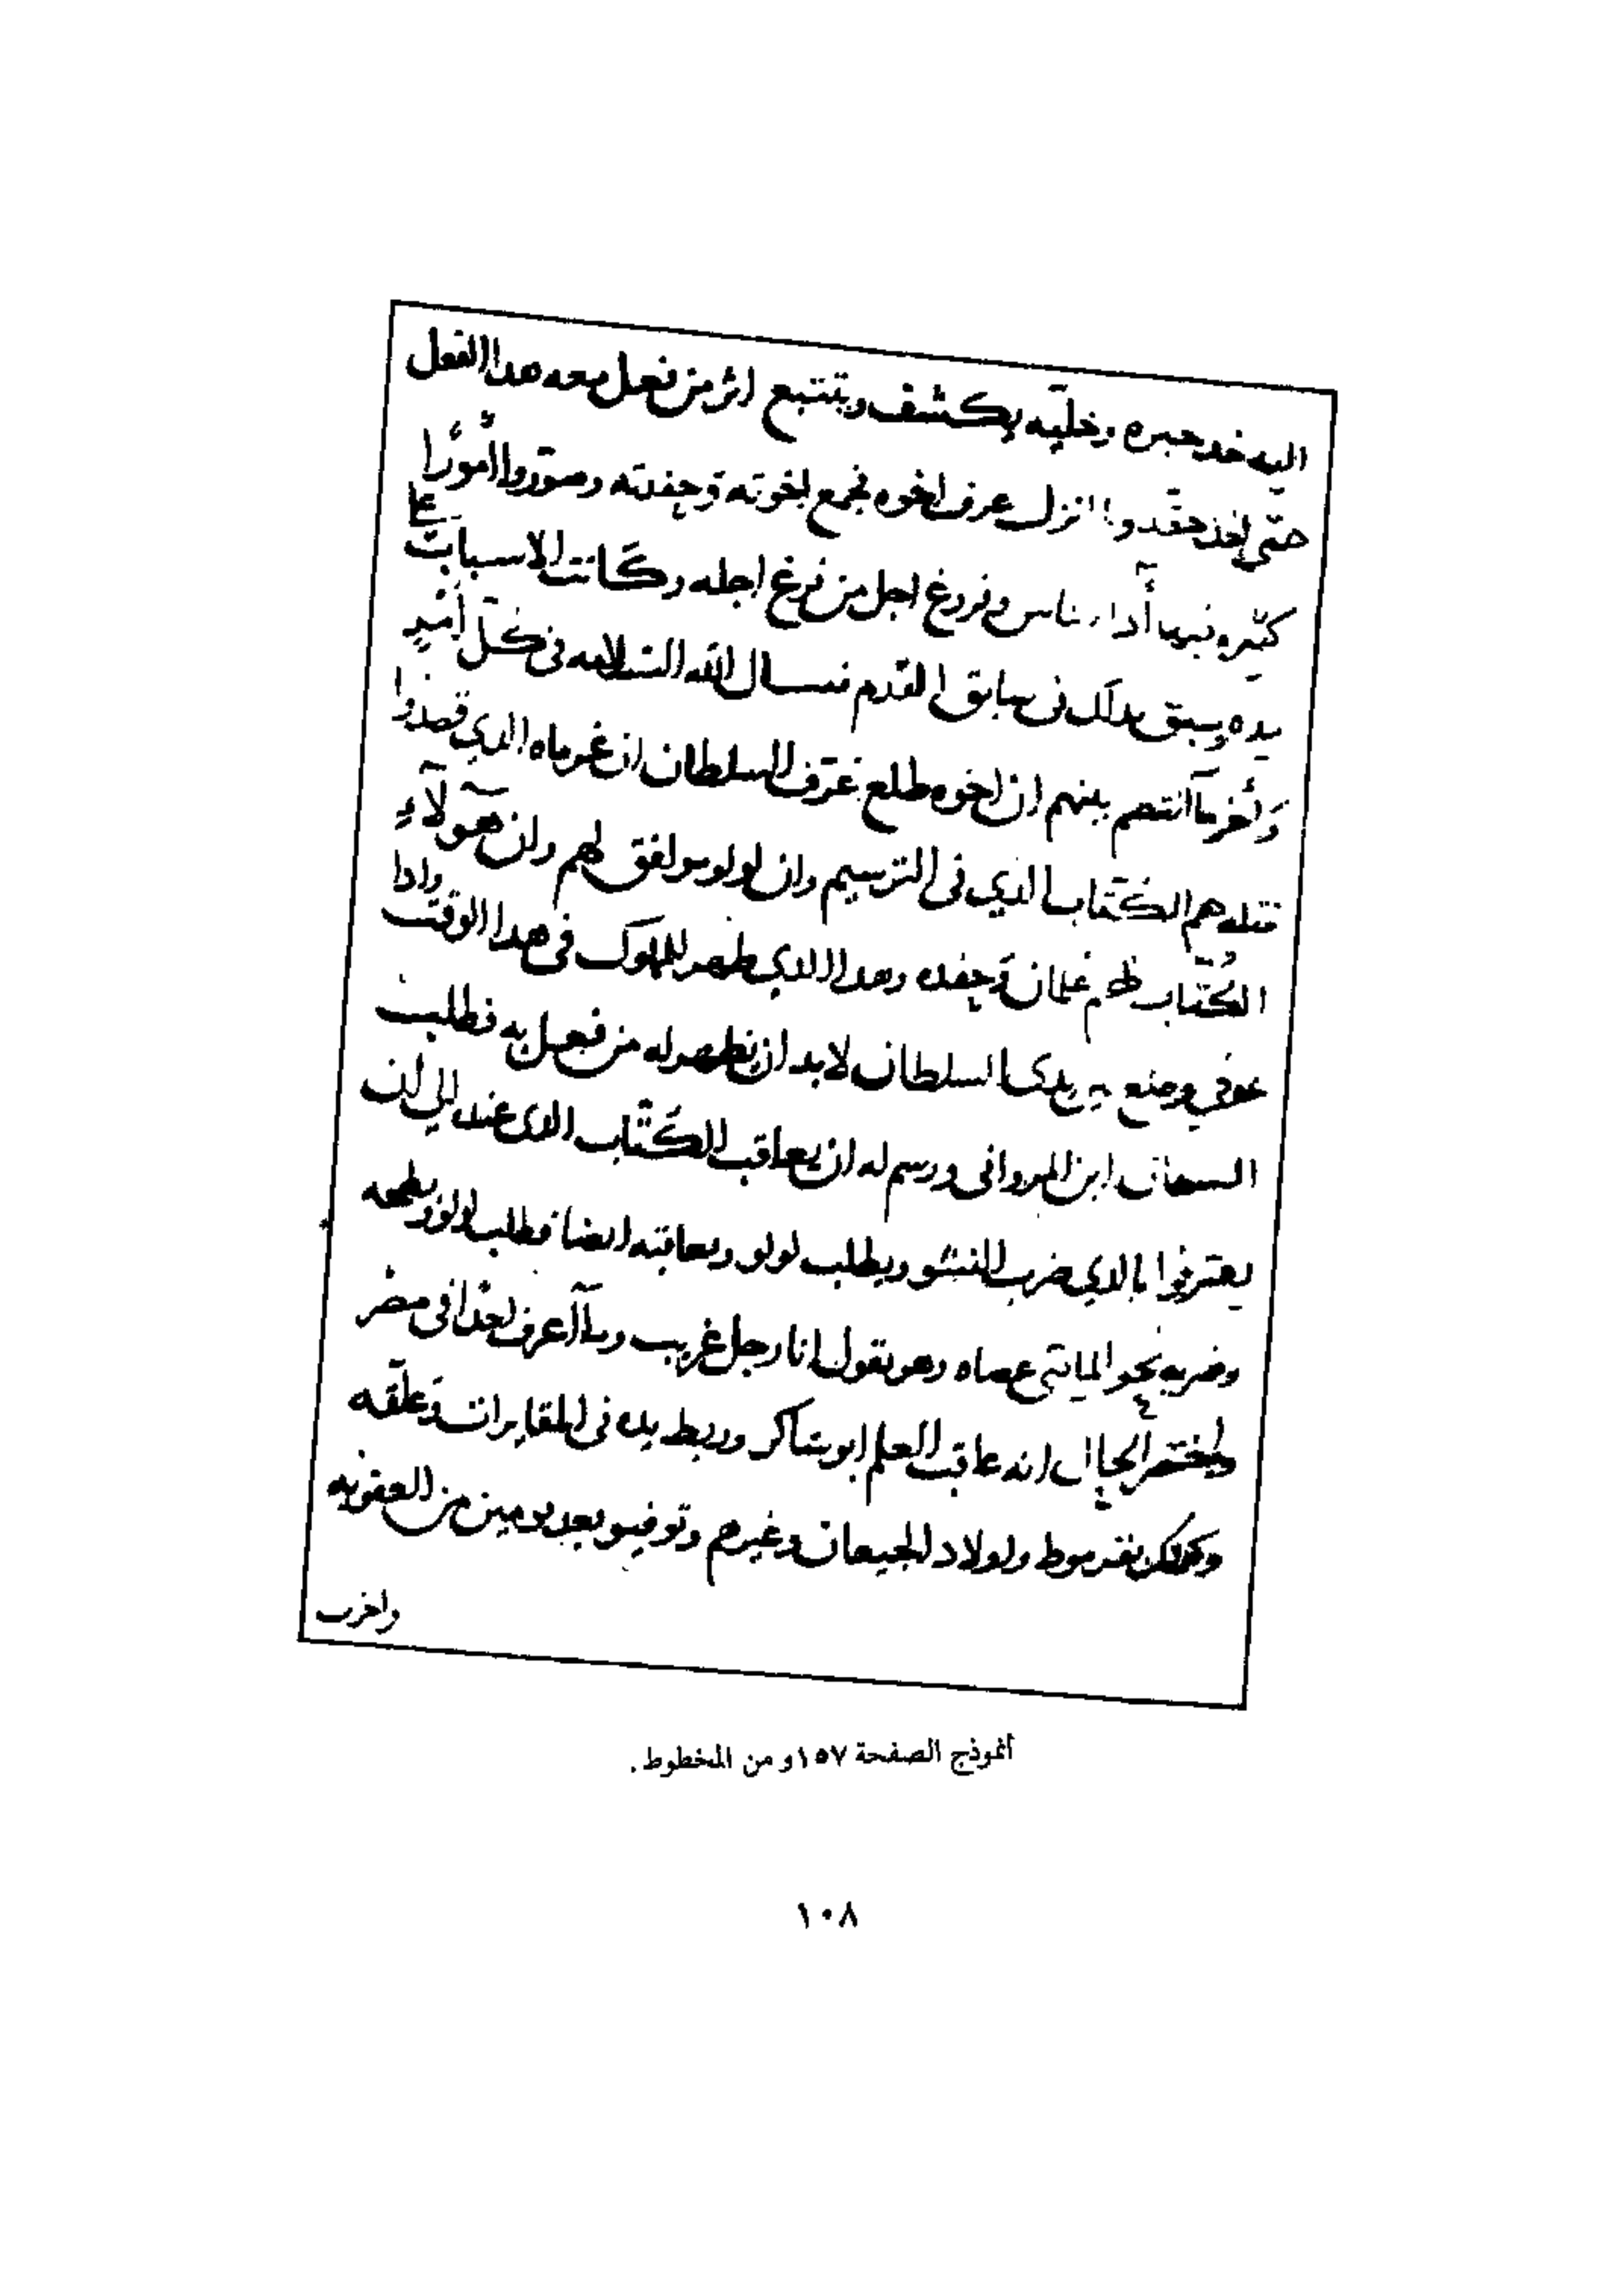 اليه خد حبره وخليه يكشف ويتتبع اثر من فعل معه هدا الفعل
حتى اخذ حقه وا انزل عرف اخوه فجمع اخوته وحفدته وصوروا أمورًا
كثيره فيها أدا وفروغ اجل من فرغ اجله وكانت الاسباب على
يده وسبق بدلك فى سابق القدم فنسال الله السلامه فى كل أمر
وأخر ما انتصم بينهم ان اخوه طلع عرف السلطان ان غرماه الدي قصدوا
قتله هم الكتاب الذي فى الترسيم وان لولو موافق لهم وان هولآء
الكتاب لهم غلمان وحفده وهدا الدي ظهر للملوك فى هدا الوقت وادا
عوفي وضع بين يدى السلطان لابد ان يظهر له من فعل به فطلب
السلطان ابن المروانى ورسم له ان يعاقب الكتاب الدى عنده الي ان
يعترفوا بالدي ضرب النشو ويطلب لولو ويعاقبه ايضا فطلب لولو وبطحه
وضربه نحو المايتى عصاه وهو يقول انا رجل غريب وما أعرف احدًا فى مصر
واختصر الحال انه عاقب العلم ابو شاكر وربط يده فى المقايرات وعلقه
وكدلك بقرموط واولاد الجيعان وغيرهم وتوفيو بعد يومين من العقوبه
واخرب
أنموذج الصفحة ١٥٧و من المخطوط .
١٠٨